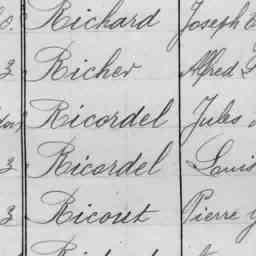 o. Richard Joseph
3 Richer Alfred
Ricordel Jules
3 Ricordel Louis
3 Ricout Pierre